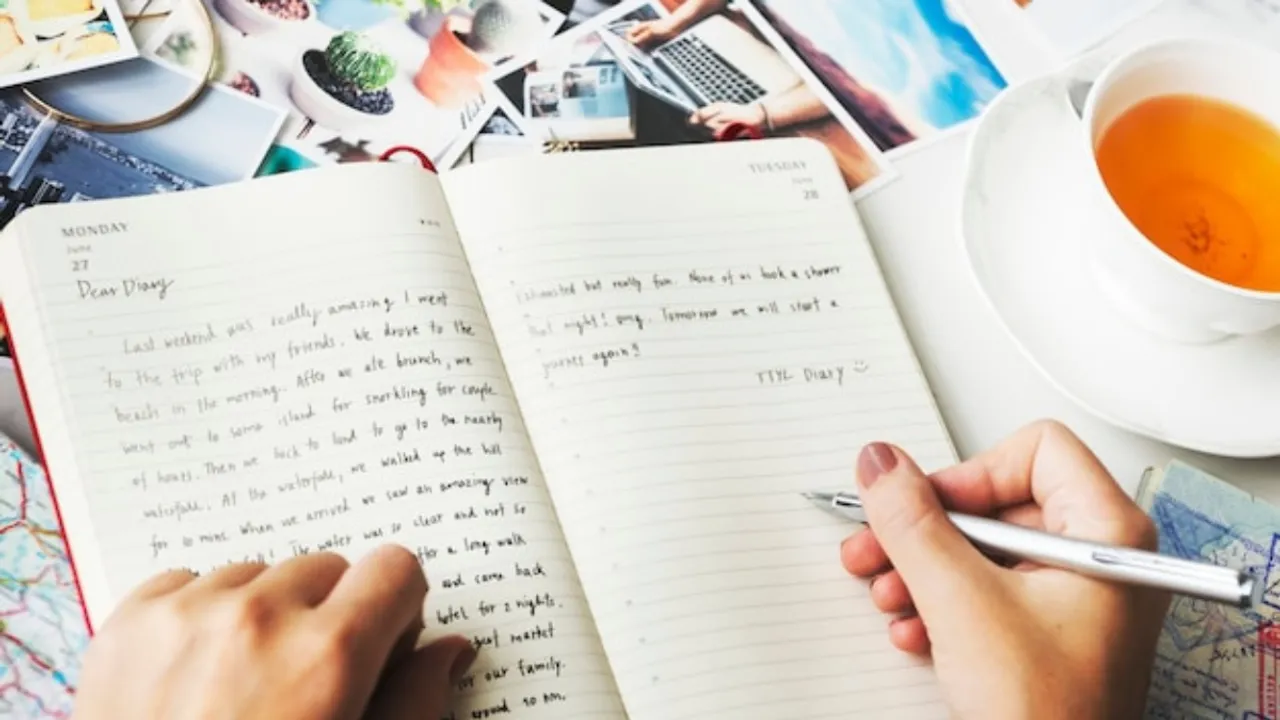 MONDAY
June
27
Dear Diary
Last weekend was really amazing I went
to the trip with my friends. We drove to the
beach in the morning. After we ate brunch, we
went out to some island for snorkling for couple
of hours. Then we back to land to go to the nearby
waterfall. At the waterfall, we walked up the hill
for 10 mins. When we arrived we saw an amazing view
The water was so clear and not so
after a long walk
and came back
hotel for 2 nights.
market
for our family.
around 50 km.
TUESDAY
June
28
Exhausted but really fun. None of us took a shower
that night! omg. Tomorrow we will start a
journey again!
TTYL Diary